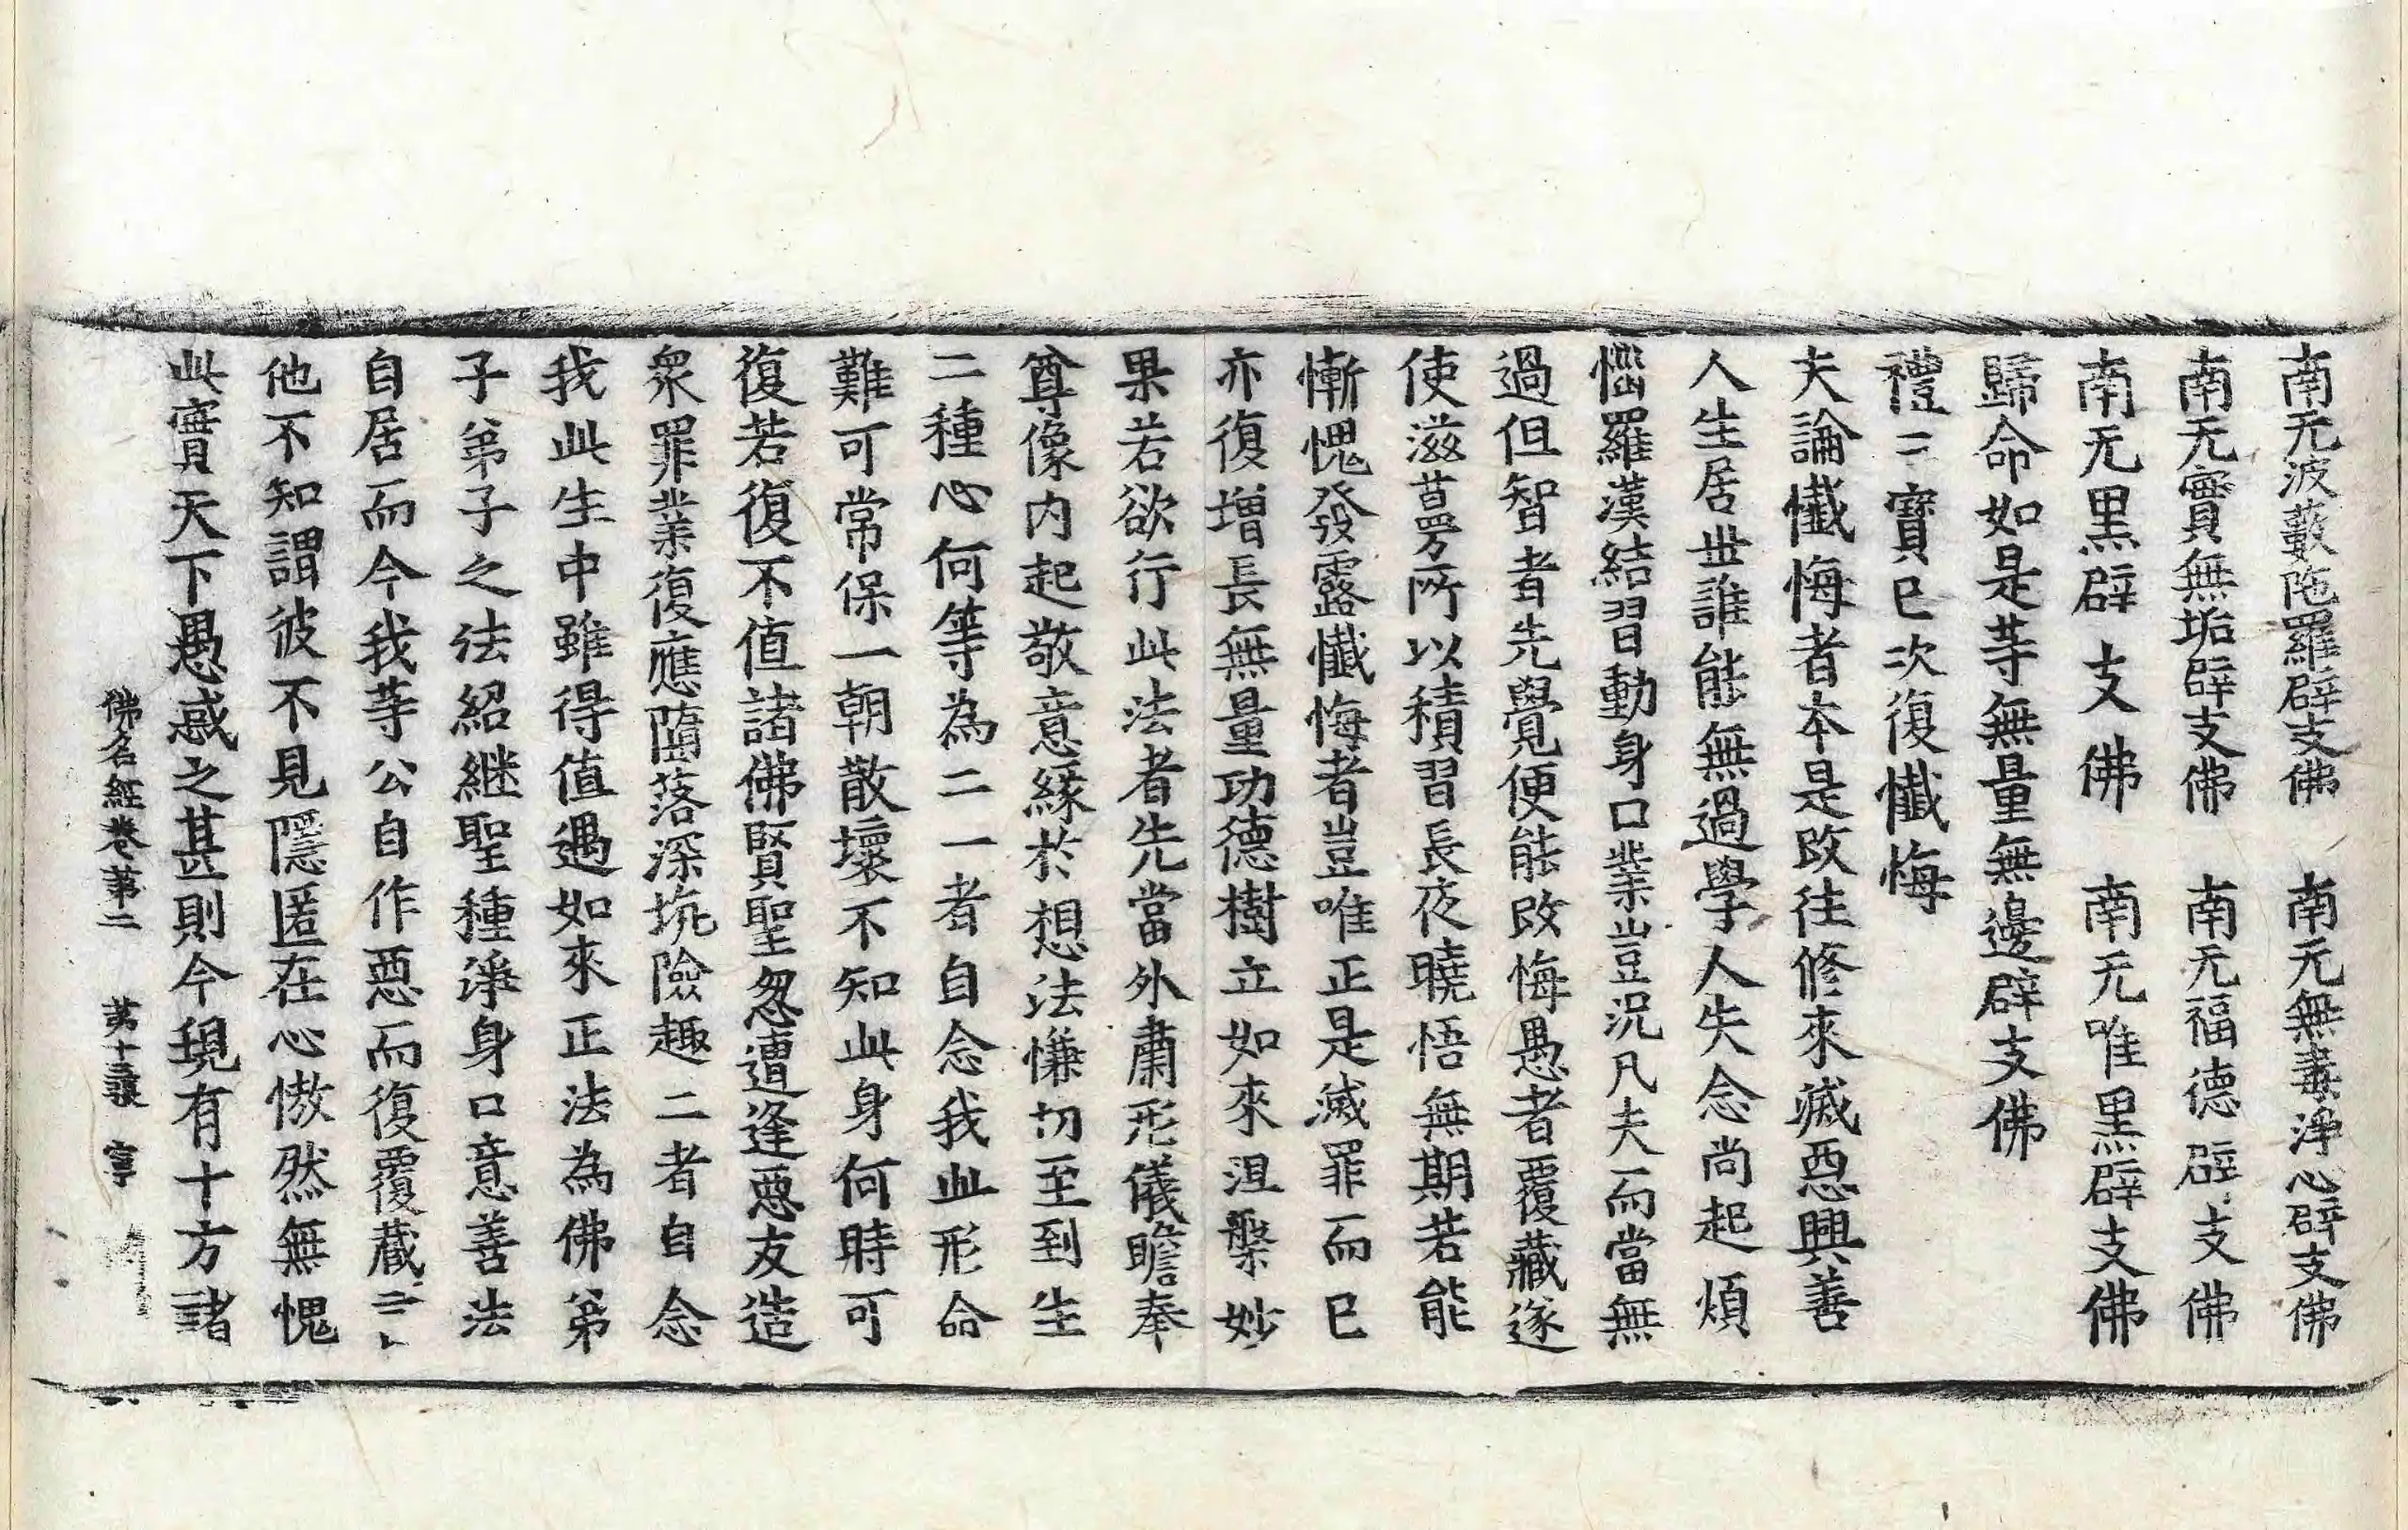 南无波藪陁羅辟支佛　南无無毒淨心辟支佛
南无寶無垢辟支佛　南无福德辟支佛
南无黒辟支佛　南无唯黒辟支佛
歸命如是等無量無邊辟支佛
禮三寶已次復懺悔
夫論懺悔者本是改往修來滅惡興善
人生居世誰能無過學人失念尚起煩
惱羅漢結習動身口業豈況凡夫而當無
過但智者先覺便能改悔愚者覆藏遂
使滋蔓所以積習長夜曉悟無期若能
慚愧發露懺悔者豈唯正是滅罪而已
亦復增長無量功德樹立如來涅槃妙
果若欲行此法者先當外肅形儀瞻奉
尊像内起敬意緣於想法慊切至到生
二種心何等為二一者自念我此形命
難可常保一朝散壞不知此身何時可
復若復不值諸佛賢聖忽遭逢惡友造
衆罪業復應墮落深坑險趣二者自念
我此生中雖得值遇如來正法為佛弟
子弟子之法紹継聖種淨身口意善法
自居而今我等公自作惡而復覆藏言
他不知謂彼不見隱匿在心慠然無愧
此實天下愚惑之甚則今現有十方諸
佛名經卷第二　第十三張　寧